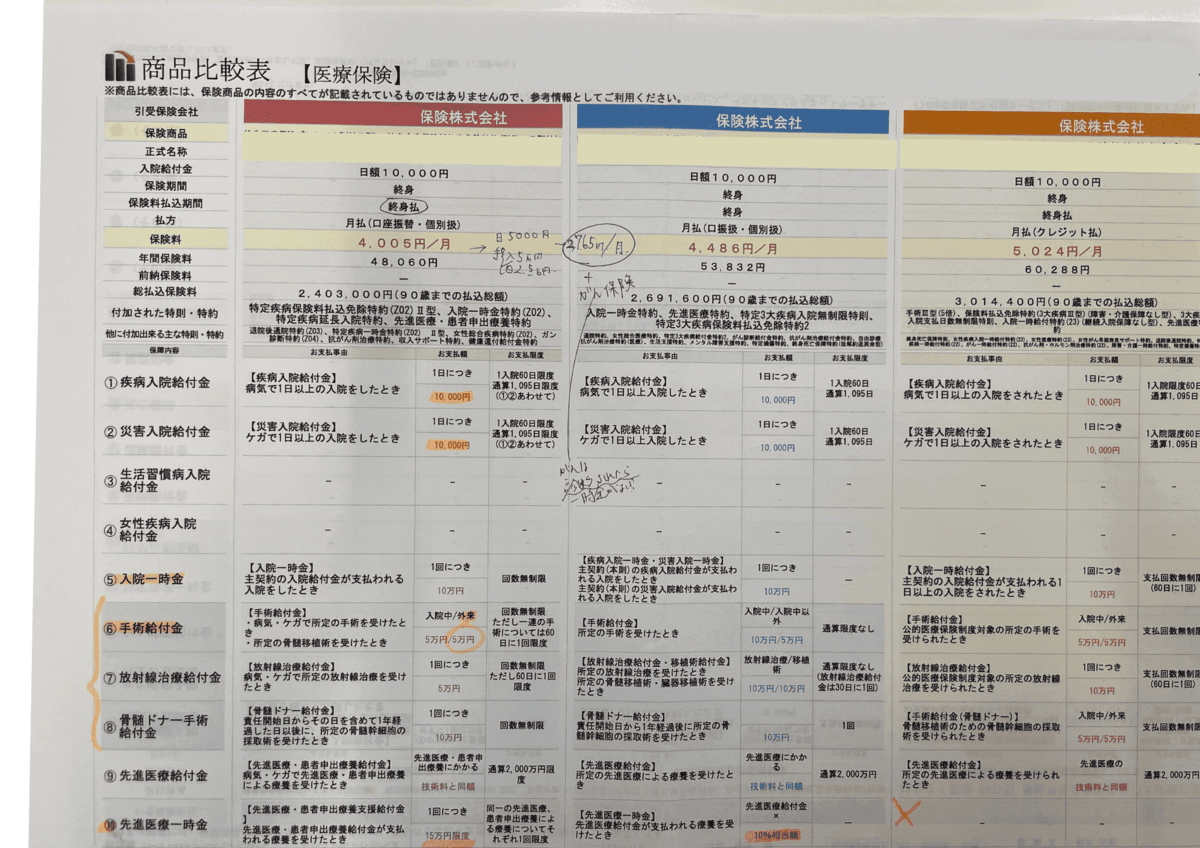 商品比較表 【医療保険】
※商品比較表には、保険商品の内容のすべてが記載されているものではありませんので、参考情報としてご利用ください。
引受保険会社 保険株式会社 保険株式会社 保険株式会社
保険商品
正式名称
入院給付金 日額10,000円 日額10,000円 日額10,000円
保険期間 終身 終身 終身
保険料払込期間 終身払 終身 終身払
払方 月払(口座振替・個別扱) 月払(口振扱・個別扱) 月払(クレジット払)
保険料 4,005円/月 4,486円/月 5,024円/月
→ 日5000円
765円/月
+
がん保険
年間保険料 48,060円 53,832円 60,288円
前納保険料 － － －
総払込保険料 2,403,000円(90歳までの払込総額) 2,691,600円(90歳までの払込総額) 3,014,400円(90歳までの払込総額)
付加された特則・特約
特定疾病保険料払込免除特約(Z02)Ⅱ型、入院一時金特約(Z02)、
特定疾病延長入院特約、先進医療・患者申出療養特約
入院一時金特約、先進医療特約、特定3大疾病入院無制限特則、
特定3大疾病保険料払込免除特約2
手術Ⅲ型(5倍)、保険料払込免除特約(3大疾病Ⅲ型)(障害・介護保障なし型)、3大疾
入院支払日数無制限特則、入院一時給付特約(23)(継続入院保障なし型)、先進医
約
他に付加出来る主な特則・特約
退院後通院特約(Z03)、特定疾病一時金特約(Z02) Ⅱ型、女性総合疾病特約(Z02)、ガン
診断特約(Z04)、抗がん剤治療特約、収入サポート特約、健康還付給付金特約
保障内容 お支払事由 お支払額 お支払限度 お支払事由 お支払額 お支払限度 お支払事由 お支払額 お支払限度
①疾病入院給付金
【疾病入院給付金】
病気で1日以上の入院をしたとき
1日につき
10,000円
1入院60日限度
通算1,095日限度
(①②あわせて)
【疾病入院給付金】
病気で1日以上入院したとき
1日につき
10,000円
1入院60日
通算1,095日
【疾病入院給付金】
病気で1日以上の入院をされたとき
1日につき
10,000円
1入院限度60日
通算1,095日
②災害入院給付金
【災害入院給付金】
ケガで1日以上の入院をしたとき
1日につき
10,000円
1入院60日限度
通算1,095日限度
(①②あわせて)
【災害入院給付金】
ケガで1日以上入院したとき
1日につき
10,000円
1入院60日
通算1,095日
【災害入院給付金】
ケガで1日以上の入院をされたとき
1日につき
10,000円
1入院限度60日
通算1,095日
がんは
診断されたら
一時金がない!
③生活習慣病入院
給付金
－ － － － － － － － －
④女性疾病入院
給付金
－ － － － － － － － －
⑤入院一時金
【入院一時金】
主契約の入院給付金が支払われる
入院をしたとき
1回につき
10万円
回数無制限
【疾病入院一時金・災害入院一時金】
主契約(本則)の疾病入院給付金が支払わ
れる入院をしたとき
主契約(本則)の災害入院給付金が支払わ
れる入院をしたとき
1回につき
10万円
－
【入院一時給付金】
主契約の入院給付金が支払われる1
日以上の入院をされたとき
1回につき
10万円
支払回数無制
(60日に1回)
⑥手術給付金
【手術給付金】
・病気・ケガで所定の手術を受けたと
き
・所定の骨髄移植術を受けたとき
入院中/外来
5万円/5万円
回数無制限
ただし一連の手
術については60
日に1回限度
【手術給付金】
所定の手術を受けたとき
入院中/入院中以
外
10万円/5万円
通算限度なし
【手術給付金】
公的医療保険制度対象の所定の手術を
受けられたとき
入院中/外来
5万円/5万円
支払回数無限
⑦放射線治療給付金
【放射線治療給付金】
病気・ケガで所定の放射線治療を受け
たとき
1回につき
5万円
回数無制限
ただし60日に1回
限度
【放射線治療給付金・移植術給付金】
所定の放射線治療を受けたとき
所定の骨髄移植術・臓器移植術を受け
たとき
放射線治療/移植
術
10万円/10万円
通算限度なし
(放射線治療給付
金は30日に1回)
【放射線治療給付金】
公的医療保険制度対象の所定の放射線
治療を受けられたとき
1回につき
10万円
支払回数無制
(60日に1回)
⑧骨髄ドナー手術
給付金
【骨髄ドナー給付金】
責任開始日からその日を含めて1年経
過した日以後に、所定の骨髄幹細胞の
採取術を受けたとき
1回につき
10万円
回数無制限
【骨髄ドナー給付金】
責任開始日から1年経過後に所定の骨
髄幹細胞の採取術を受けたとき
1回につき
10万円
1回
【手術給付金(骨髄ドナー)】
骨髄移植のための骨髄幹細胞の採取
術を受けられたとき
入院中/外来
5万円/5万円
支払回数無限
⑨先進医療給付金
【先進医療・患者申出療養給付金】
病気・ケガで先進医療・患者申出療養
による療養を受けたとき
先進医療・患者申
出療養にかかる
技術料と同額
通算2,000万円限
度
【先進医療給付金】
所定の先進医療による療養を受けたと
き
先進医療にかか
る
技術料と同額
通算2,000万円
【先進医療給付金】
所定の先進医療による療養を受けられ
たとき
先進医療の
技術料と同額
通算2,000万
⑩先進医療一時金
【先進医療・患者申出療養支援給付金
】
先進医療・患者申出療養給付金が支払
われる療養を受けたとき
1回につき
15万円限度
同一の先進医療、
患者申出療養によ
る療養についてそ
れぞれ1回限度
【先進医療一時金】
先進医療給付金が支払われる療養を受
けたとき
先進医療給付金
×
10%相当額
－
－ － －